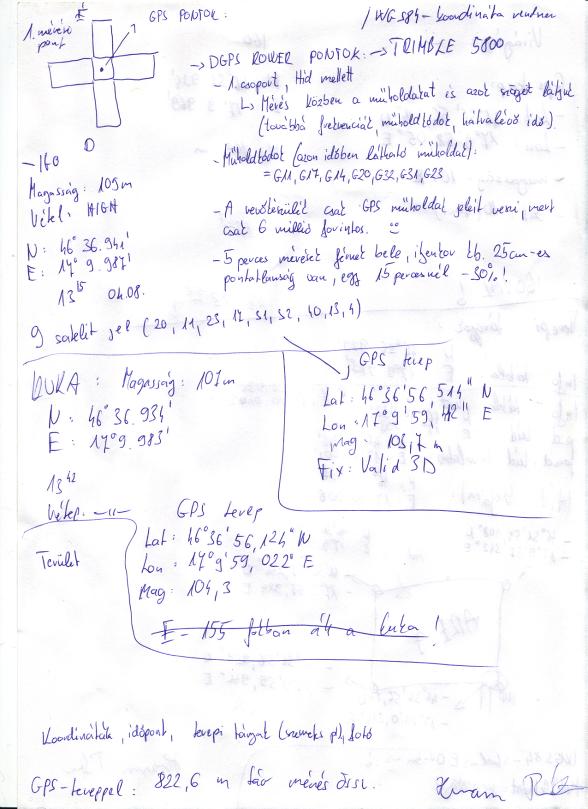 É
GPS PONTOK:
/ WGS84 - koordináta rendszer
1. mérési
pont
D
-> DGPS ROVER PONTOK: -> TRIMBLE 5800
- 1. csoport, Híd mellett
Mérés közben a műholdakat és azok
(továbbá frekvenciát, műholdkódot, hátralévő idő).
- Műholdkódok (azon időben látható műholdak):
= G11, G17, G14, G20, G32, G31, G23
- A csak GPS műholdak jeleit veszi, mert
csak 6 millió forintos.
- 5 perces mérések bele, ilyenkor kb. 25cm-es
pontatlanság van, egy 15 percesnél -30%!
-160
Magasság: 109m
Vétel: HIGH
N: 46° 36.941'
E: 17° 9.987'
13 15 04.08.
9 satelit jel (20, 11, 23, 17, 31, 32, 40, 13, 4)
KUKA: Magasság: 107m
N: 46° 36.934'
E: 17° 9.983'
13 42
Vétel -"-
GPS terep
Lat: 46°36'56,514" N
Lon: 17°9'59,412" E
mag: 103,7 m
Fix: Valid 3D
GPS terep
Lat: 46°36'56,124" N
Lon: 17°9'59,022" E
Mag: 104,3
Terület
É - 155 fokban áll a kuka!
Koordináták, időpont, terepi tárgyak (szemetes pl), fotó
GPS-tereppel: 822,6 m táv mérés össz.